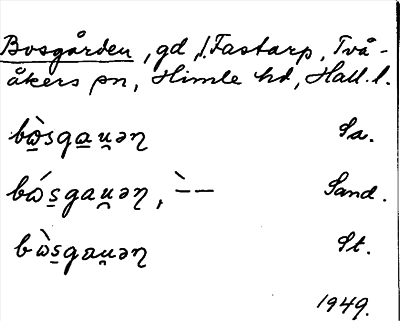 Bosgården, gd, i. Fastarp, Två-
åkers sn, Himle hd, Hall. l.
bὼ̱sga̱u̯əɳ Sa.
bώs̱gau̯əɳ, ̀– – Sand.
bὼs̱gau̯əɳ St.
1949.